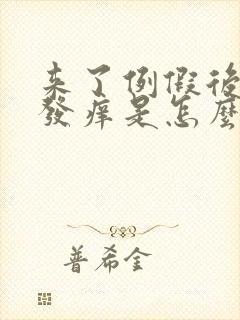 来了例假後
發痒是怎麼
普希金